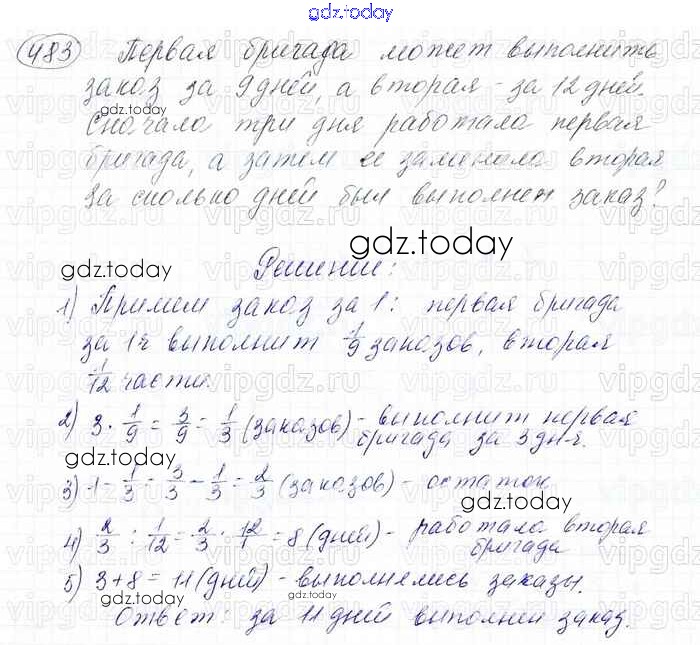 gdz.today
483 Первая бригада может выполнить
заказ за 9 дней, а вторая - за 12 дней.
gdz.today
Сначала три дня работала первая
бригада, а затем ее заменила вторая
За сколько дней был выполнен заказ?
gdz.today
gdz.today
Решение:
1) Примем заказ за 1: первая бригада
за 1ч выполнит 1/9 заказов, вторая
1/12 части.
2) 3 · 1/9 = 3/9 = 1/3 (заказов) - выполнит первая
бригада за 3 дня.
gdz.today
3) 1 - 1/3 = 3/3 - 1/3 = 2/3 (заказов) - остаток
4) 2/3 : 1/12 = 2/3 · 12/1 = 8 (дней) - работала вторая
бригада
gdz.today
5) 3 + 8 = 11 (дней) - выполнялись заказы.
Ответ: за 11 дней выполнен заказ.